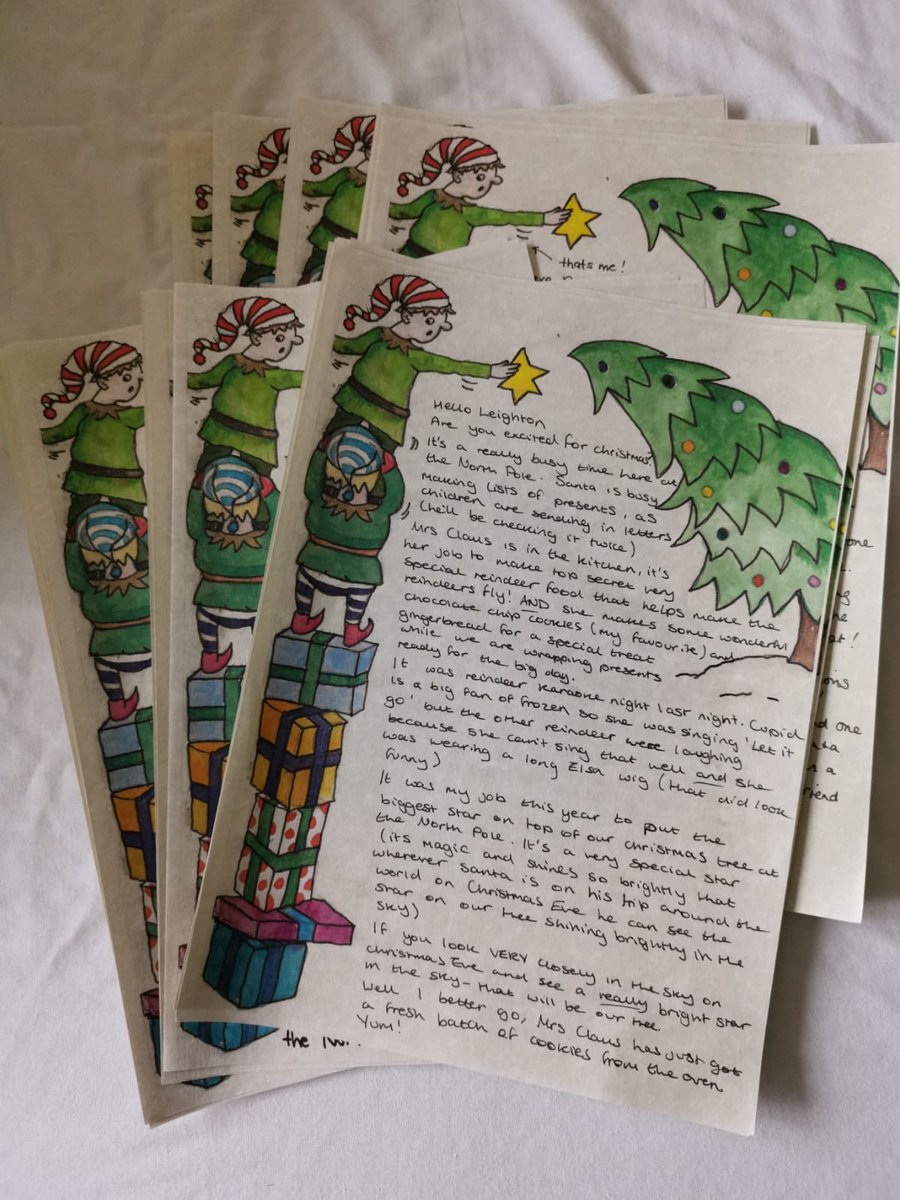 thats me!
Hello Leighton
Are you excited for christmas
It's a really busy time here at
the North Pole. Santa is busy
making lists of presents, as
children are sending in letters
(he'll be checking it twice)
Mrs Claus is in the kitchen, it's
her job to make top secret very
special reindeer food that helps make the
reindeers fly! AND she makes some wonderful
chocolate chip cookies (my favourite) and
gingerbread for a special treat
while we are wrapping presents
ready for the big day.
It was reindeer karaoke night last night. Cupid
is a big fan of frozen so she was singing 'Let it
go' but the other reindeer were laughing
because she can't sing that well and she
was wearing a long Elsa wig (that did look
funny)
It was my job this year to put the
biggest star on top of our christmas tree at
the North Pole. It's a very special star
(its magic and shines so brightly that
wherever Santa is on his trip around the
world on Christmas Eve he can see the
star on our tree shining brightly in the
sky)
If you look VERY closely in the sky on
christmas Eve and see a really bright star
in the sky - that will be our tree.
Well I better go, Mrs Claus has just got
a fresh batch of cookies from the oven
Yum!
the
one
one
friend